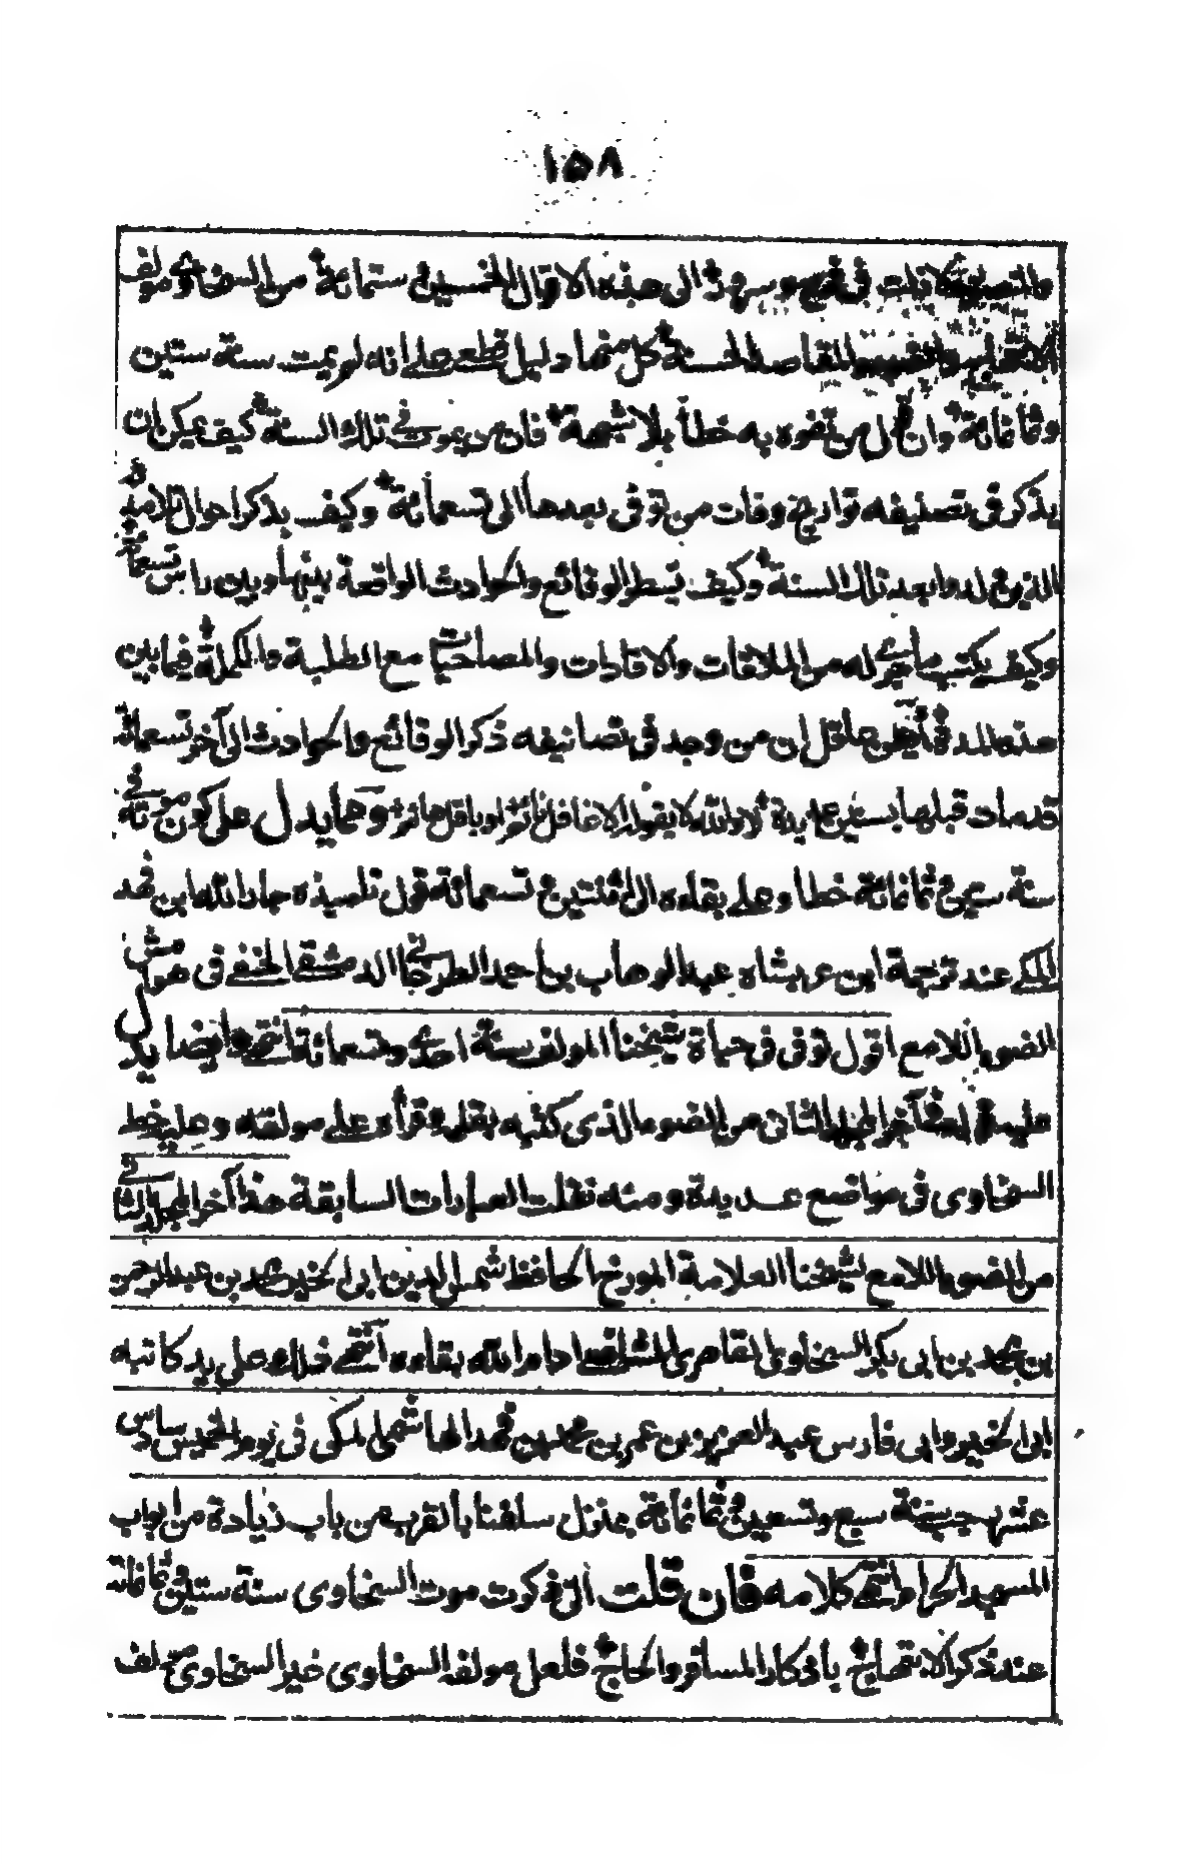 ١٥٨
الى هذه الاقوال الخمسين ستمائة من السخاوى مولف
المقاصد الحسنة كل منها دليل قطعى على انه لم يمت سنة ستين
وثمانمائة وان من تفوه به خطأ بلا شبهة فان من يموت فى تلك السنة كيف يمكن ان
يذكر فى تصنيفه تواريخ وفات من توفى بعدها الى تسعمائة وكيف يذكر احوال تلامذه
الذين له ما بعد تلك السنة وكيف يسطر الوقائع والحوادث الواقعة بينها وبين راس تسعمائة
وكيف يكتب ما جرى له من الملاقات والافادات والمصاحبات مع الطلبة والكملة فيما بين
هذه المدة ان من وجد فى تصانيفه ذكر الوقائع والحوادث الى آخر تسعمائة
قد مات قبلها بسنين عديدة لا والله لا يقوله الا غافل او ومما يدل على كون موته فى
سنة ثمانمائة خطأ وعلى بقاءه الى تسعمائة قول تلميذه جار الله ابن فهد
المكى عند ترجمة ابن عربشاه عبد الوهاب بن احمد الدمشقى الحنفى فى هوامش
الضوء اللامع اقول توفى فى حياة شيخنا المولف سنة احدى وتسعمائة انتهى وايضا يدل
عليه آخر المجلد الثانى من الضوء الذى كتبه بقلمه وقرأه على مولفه وعليه خط
السخاوى فى مواضع عديدة ومنه نقلت العبارات السابقة هذا آخر المجلد الثانى
من الضوء اللامع لشيخنا العلامة المورخ الحافظ شمس الدين ابى الخير محمد بن عبد الرحمن
بن محمد بن ابى بكر السخاوى القاهرى الشافعى ادام الله بقاءه آنتهى على يد كاتبه
ابى الخير وابى فارس عبد العزيز بن عمر بن محمد بن فهد الهاشمى المكى فى يوم الخميس سادس
عشر رجب سنة سبع وتسعين وثمانمائة بمنزل سلفنا بالقرب من باب زيادة من ابواب
المسجد الحرام انتهى كلامه فان قلت الذى ذكرت موت السخاوى سنة ستين وثمانمائة
عند ذكر الابتهاج باذكار المسافر والحاج فلعل مولفه السخاوى غير السخاوى مولف